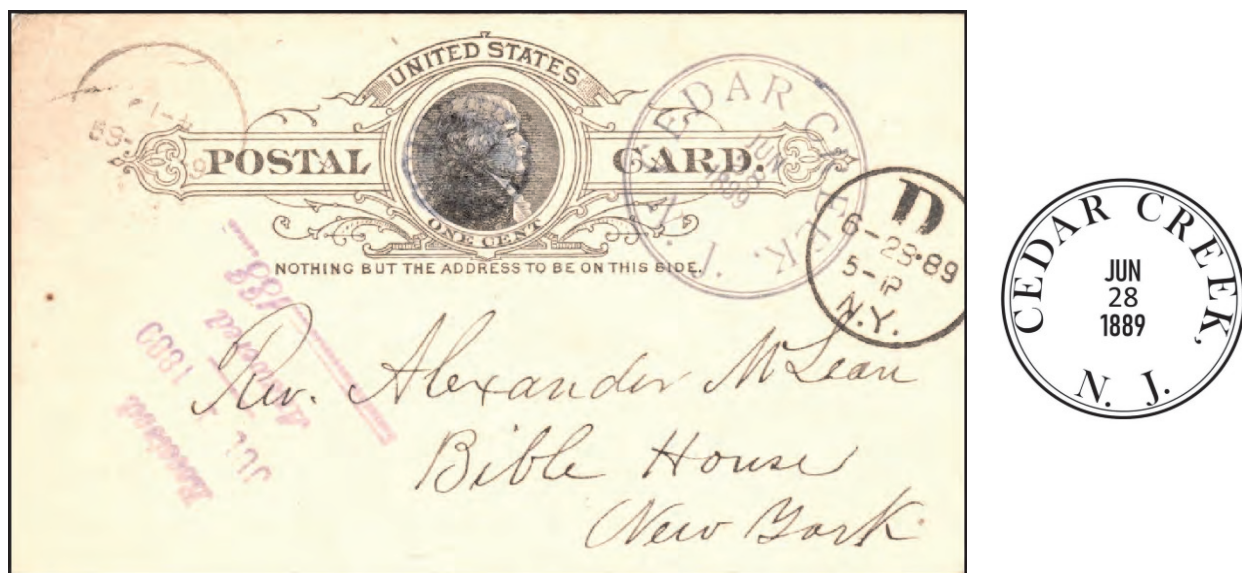 UNITED STATES
POSTAL CARD.
ONE CENT
NOTHING BUT THE ADDRESS TO BE ON THIS SIDE.
CEDAR CREEK, N. J.
JUN
1889
D
6-28-89
5-P
N.Y.
Rev. Alexander McLean
Bible House
New York
Received
JUL
Answered
CEDAR CREEK,
JUN
28
1889
N. J.